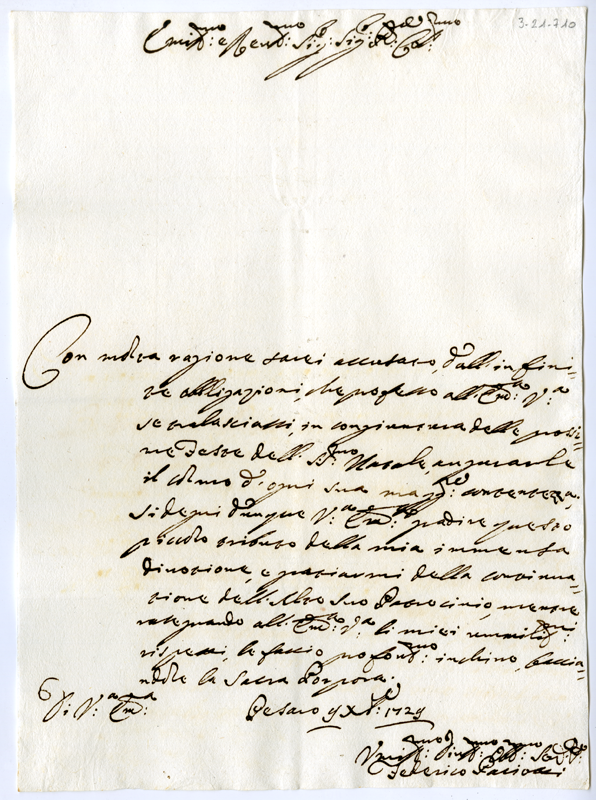 3-21-710
Em:mo e Rev:mo Sig:r Sig:r
Con molta ragione sarei accusato dall'infini-
te obligazioni, che professo all'Em:a V:a
se tralasciassi, in congiuntura delle prossi-
me Feste dell: SS:mo Natale, augurarle
il colmo d'ogni sua magg:re contentezza,
si degni dunque V:a Em:a gradire questo
picciolo tributo della mia immensa
divozione, e graziarmi della continua-
zione dell'Alto suo Patrocinio, mentre
rassegnando all'Em:a V:a li miei umiliss:mi
rispetti, le faccio profond:mo inchino, bacian-
dole la Sacra Porpora.
Di V:a Em:a
Pesaro 1729
Umil:mo Div:mo Obb:mo Ser:re
Federico Paciotti